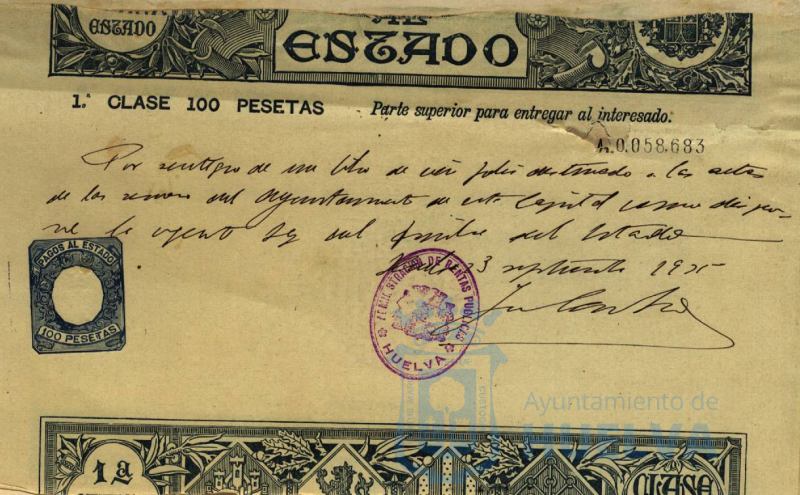 AL
ESTADO
ESTADO
1.ª CLASE 100 PESETAS Parte superior para entregar al interesado.
A,0.058.683
Por reintegro de un libro de cien folios destinado a las actas
de las sesiones del Ayuntamiento de esta Capital como dispo-
ne la vigente ley del Timbre del Estado
Huelva 3 septiembre 1925
PAGOS AL ESTADO
100 PESETAS
ADMINISTRACIÓN DE RENTAS PUBLICAS
HUELVA
Ayuntamiento de
HUELVA
1ª
CLASE